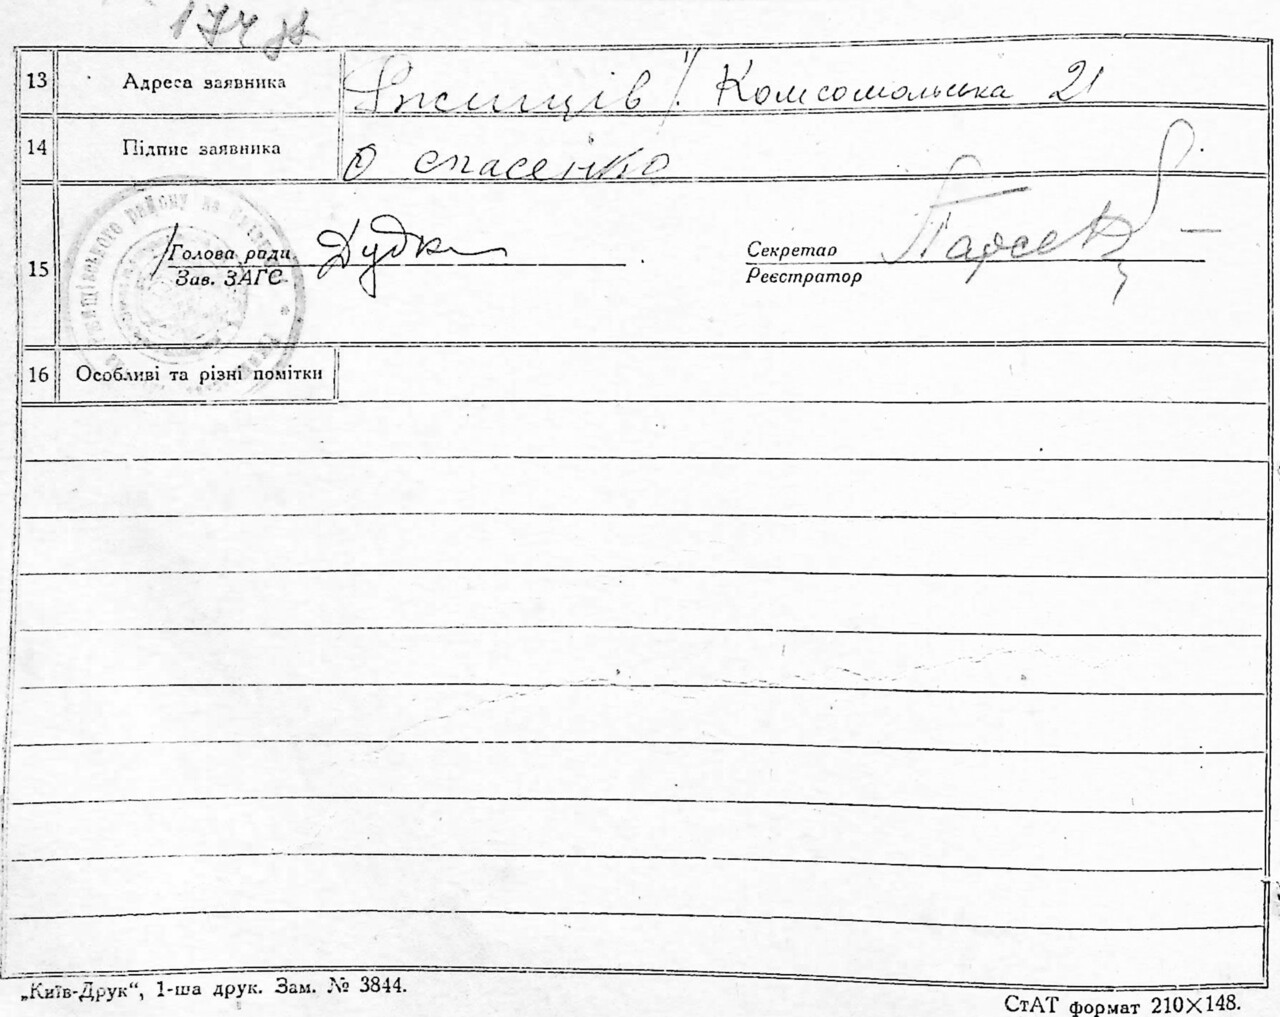 174 зв
13 Адреса заявника Ржищів / Комсомольська 21
14 Підпис заявника О спасенко
15 Голова ради Дудка Секретар
Зав. ЗАГС Реєстратор
16 Особливі та різні помітки
„Київ-Друк“, 1-ша друк. Зам. № 3844.
СтАТ формат 210×148.